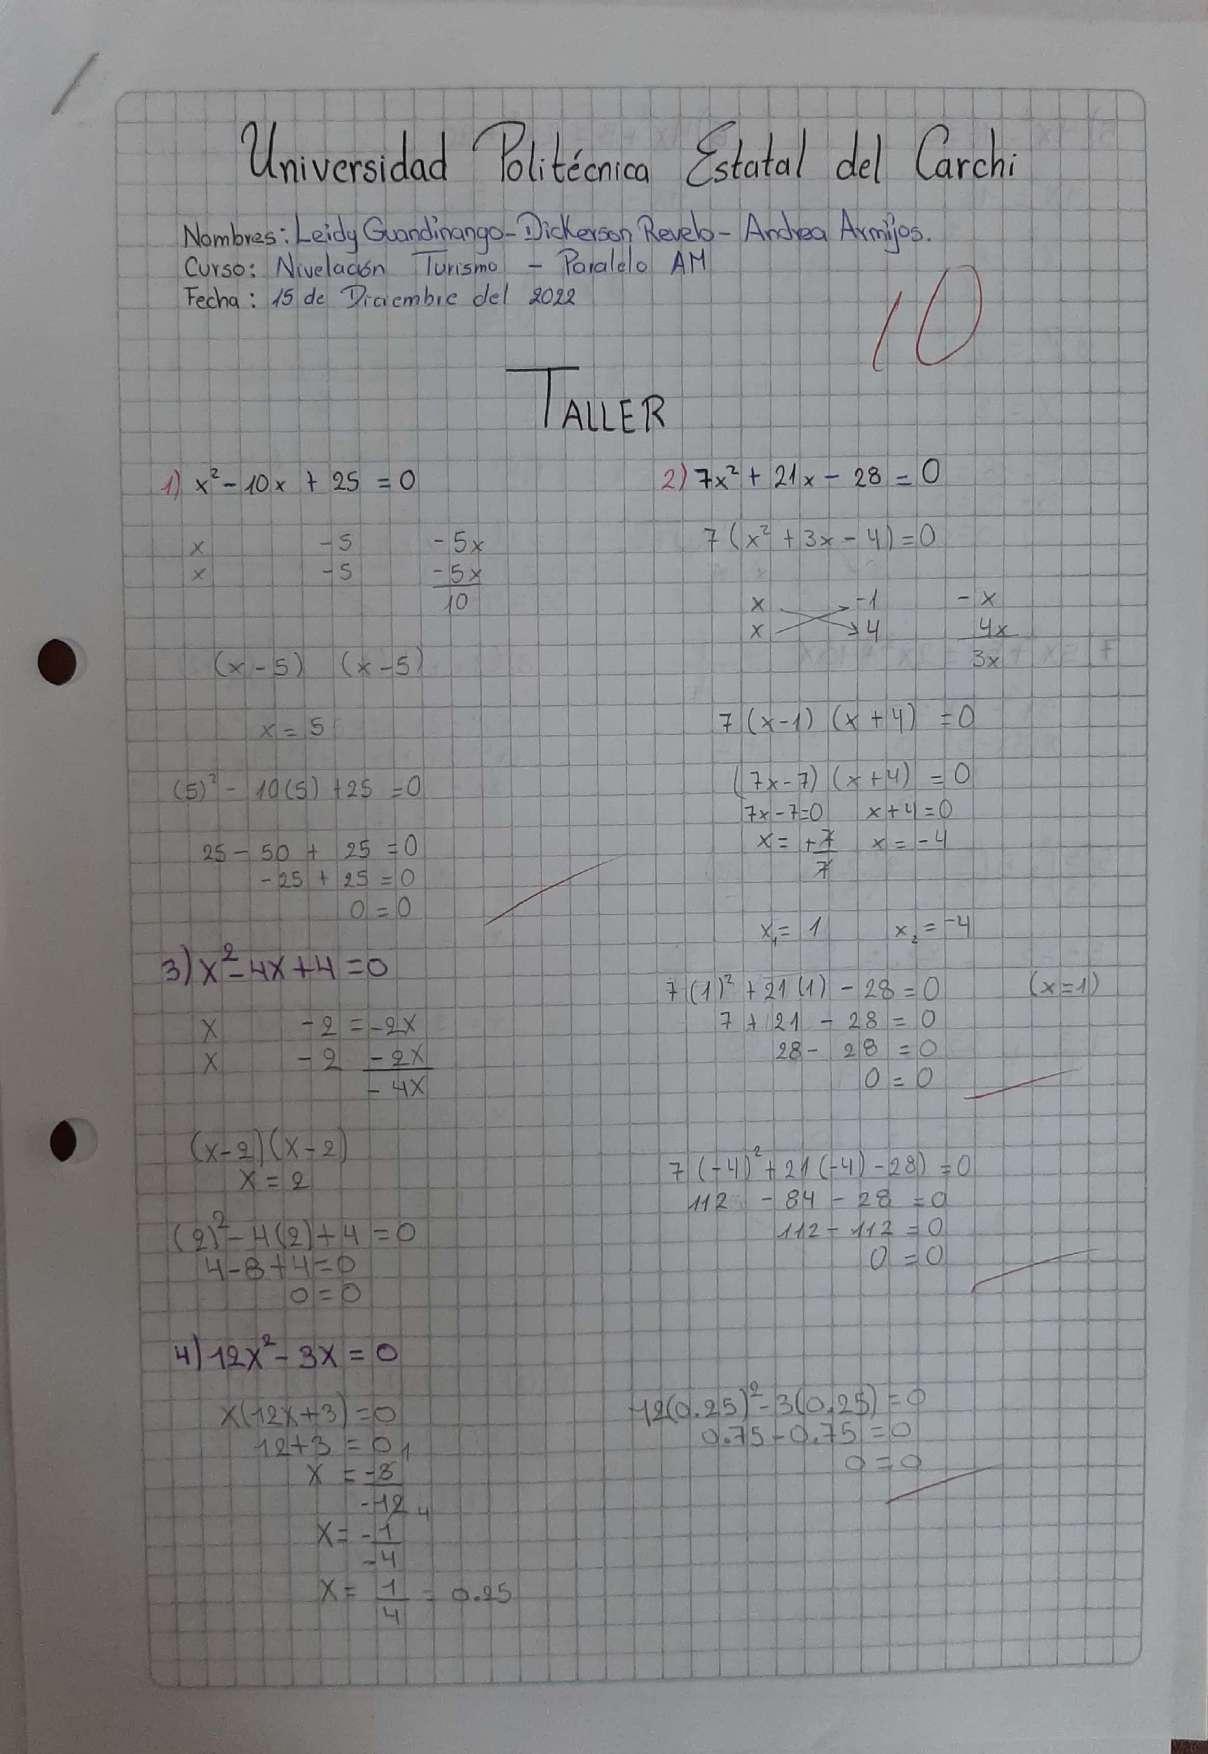 Universidad Politécnica Estatal del Carchi
Nombres: Leidy Guandinango - Dickerson Revelo - Andrea Armijos.
Curso: Nivelación Turismo - Paralelo AM
Fecha: 15 de Diciembre del 2022
10
TALLER
1) x² - 10x + 25 = 0
x -5 -5x
x -5 -5x
10
(x - 5) (x - 5)
x = 5
(5)² - 10(5) + 25 = 0
25 - 50 + 25 = 0
-25 + 25 = 0
0 = 0
2) 7x² + 21x - 28 = 0
7(x² + 3x - 4) = 0
x -1 -x
x 4 4x
3x
7(x-1) (x + 4) = 0
(7x - 7) (x + 4) = 0
7x - 7 = 0 x + 4 = 0
x = +7/7 x = -4
x₁ = 1 x₂ = -4
7(1)² + 21(1) - 28 = 0 (x=1)
7 + 21 - 28 = 0
28 - 28 = 0
0 = 0
7(-4)² + 21(-4) - 28) = 0
112 - 84 - 28 = 0
112 - 112 = 0
0 = 0
3) x² - 4x + 4 = 0
x -2 = -2x
x -2 -2x
-4x
(x - 2)(x - 2)
x = 2
(2)² - 4(2) + 4 = 0
4 - 8 + 4 = 0
0 = 0
4) 12x² - 3x = 0
x(12x + 3) = 0
12 + 3 = 0
x = -3/-12 1 4
x = -1/-4
x = 1/4 = 0.25
12(0.25)² - 3(0.25) = 0
0.75 - 0.75 = 0
0 = 0